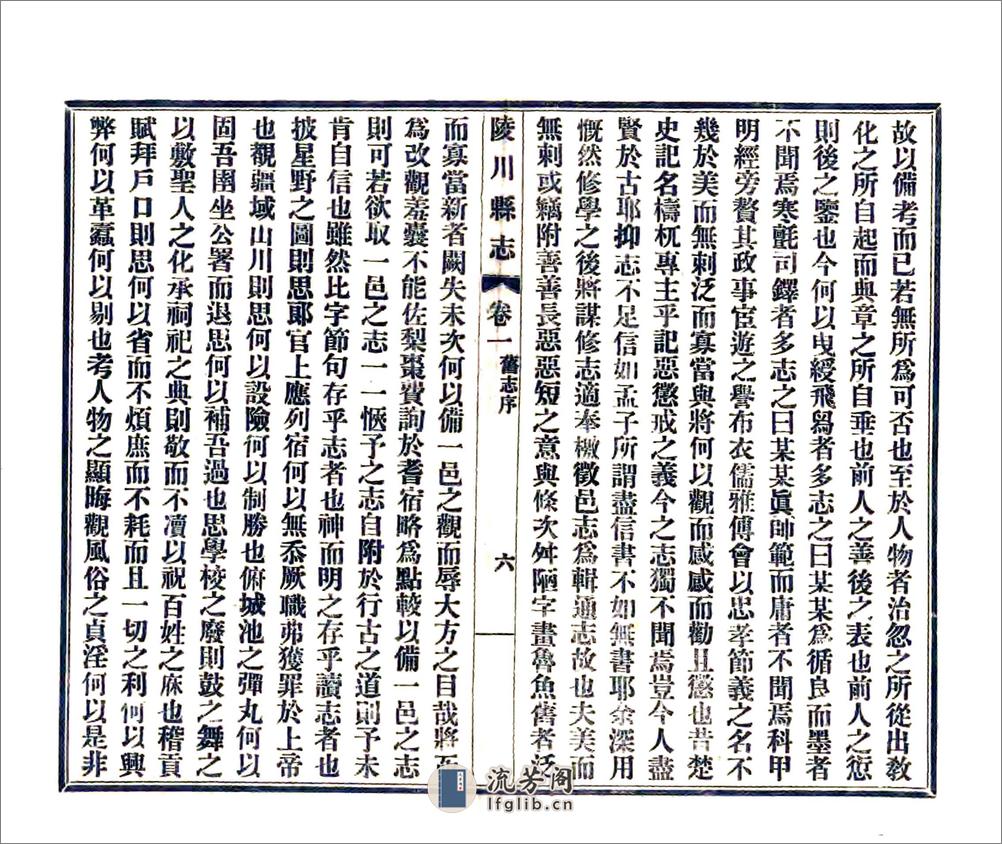 故以備考而已若無所爲可否也至於人物者治忽之所從出敎
化之所自起而典章之所自垂也前人之善後之表也前人之愆
則後之鑒也今何以曳綬飛舄者多志之曰某某爲循良而墨者
不聞焉寒氈司鐸者多志之曰某某眞師範而庸者不聞焉科甲
明經旁贅其政事宦遊之譽布衣儒雅傅會以忠孝節義之名不
幾於美而無刺泛而寡當與將何以觀而感感而勸且懲也昔楚
史記名檮杌專主乎記惡懲戒之義今之志獨不聞焉豈今人盡
賢於古耶抑志不足信如孟子所謂盡信書不如無書耶余深用
慨然修學之後將謀修志適奉檄徵邑志爲輯通志故也夫美而
無刺或竊附善善長惡惡短之意與條次舛陋字畫魯魚舊者泛
陵川縣志 卷一 舊志序 六
而寡當新者闕失未次何以備一邑之觀而辱大方之目哉將
爲改觀羞囊不能佐梨棗費詢於耆宿略爲點較以備一邑之志
則可若欲取一邑之志一一愜予之志自附於行古之道則予未
肯自信也雖然比字節句存乎志者也神而明之存乎讀志者也
披星野之圖則思郞官上應列宿何以無忝厥職弗獲罪於上帝
也觀疆域山川則思何以設險何以制勝也俯城池之彈丸何以
固吾圉坐公署而退思何以補吾過也思學校之廢則鼓之舞之
以敷聖人之化承祠祀之典則敬而不瀆以祝百姓之庥也稽貢
賦拜戶口則思何以省而不煩庶而不耗而且一切之利何以興
弊何以革蠹何以剔也考人物之顯晦觀風俗之貞淫何以是非
流芳阁
lfglib.cn